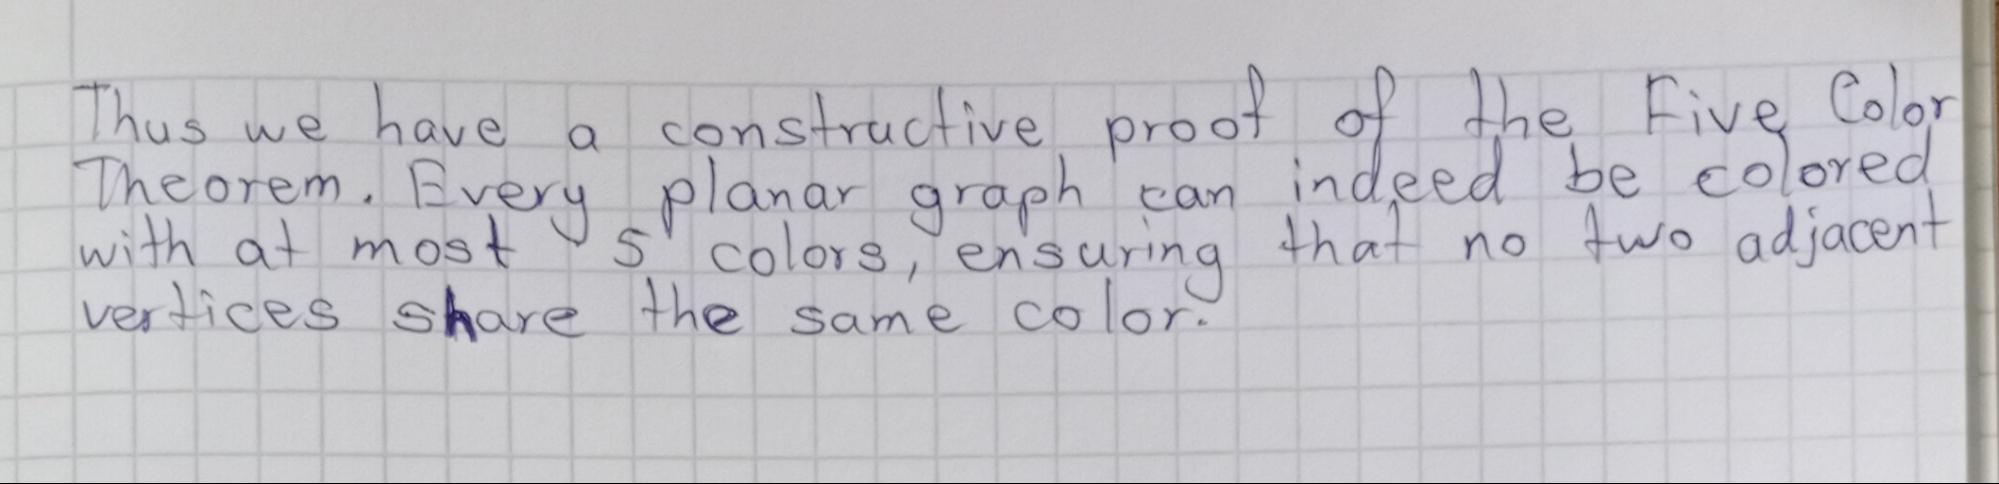 Thus we have a constructive proof of the Five Color
Theorem. Every planar graph can indeed be colored
with at most 5 colors, ensuring that no two adjacent
vertices share the same color.